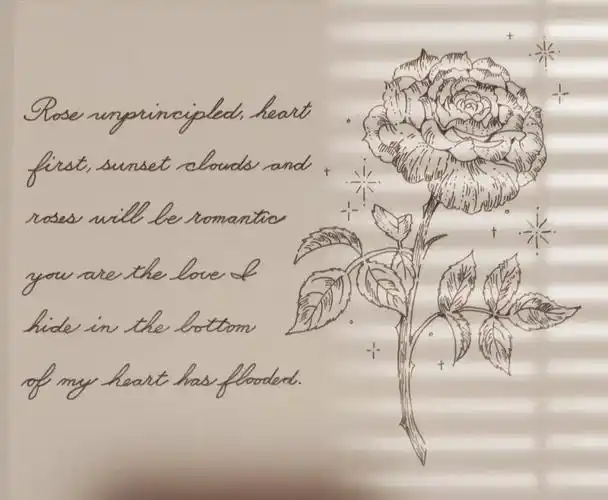 Rose unprincipled, heart
first, sunset clouds and
roses will be romantic
you are the love I
hide in the bottom
of my heart has flooded.